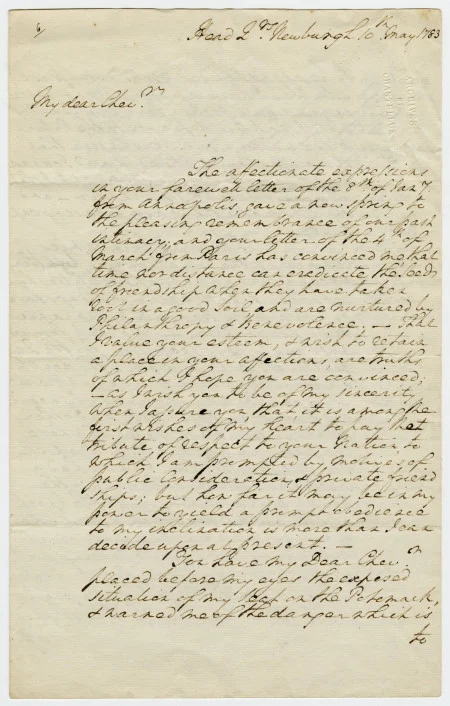 6/
Head Qrs Newburgh 10th May 1783
My dear Chevr.
The affectionate expressions
in your farewell letter of the 8th of Jany.
from Annapolis, gave a new spring to
the pleasing remembrance of our past
intimacy, and your letter of the 4th of
March from Paris has convinced me that
time nor distance can eradicate the seeds
of friendship when they have taken
root in a good soil, and are nurtured by
Philanthropy & Benevolence, — That
I value your esteem, & wish to retain
a place in your affections, are truths
of which I hope you are convinced;
— as I wish you to be of my sincerity
when I assure you, that it is among the
first wishes of my heart to pay that
tribute of respect to your Nation to
which I am prompted by motives of
public consideration & private friend
ships; but how far it may be in my
power to yield a prompt obedience
to my inclination is more than I can
decide upon at present. —
You have my Dear Chevr.
placed before my eyes the exposed
situation of my Seat on the Potomack,
& warned me of the danger which is
to